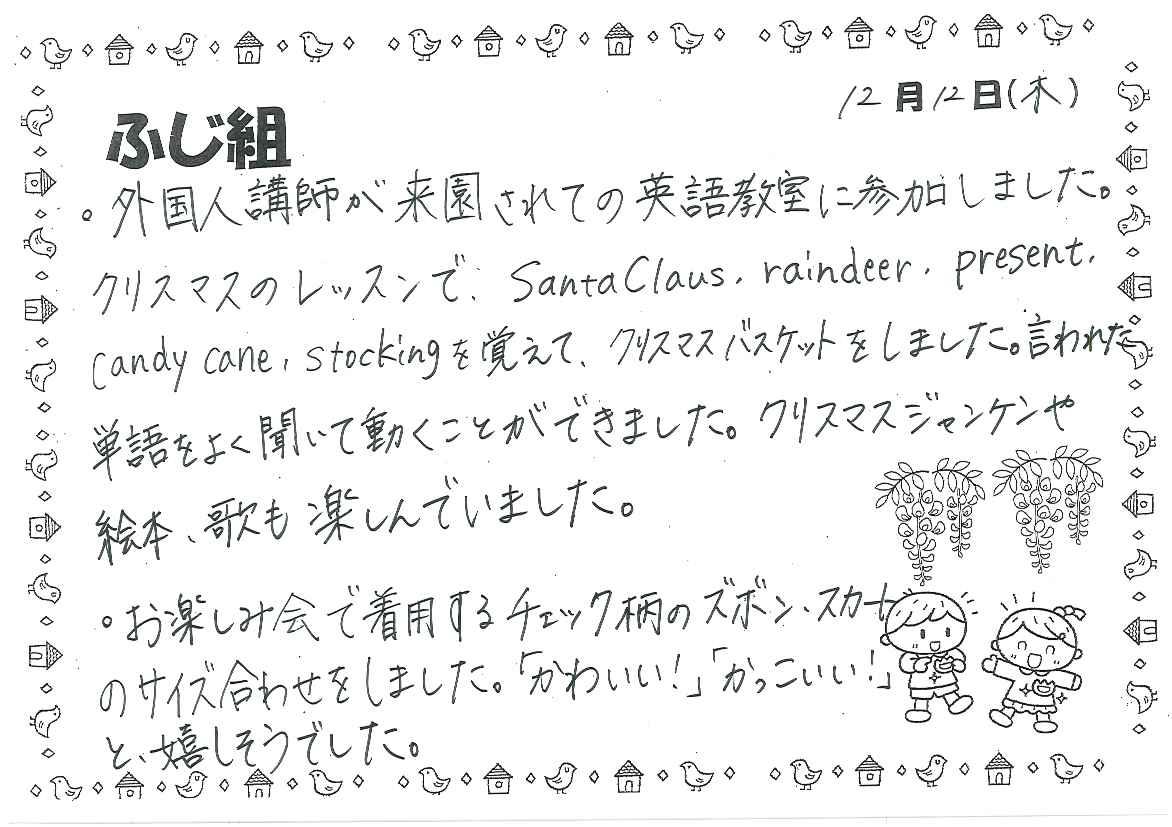 12月12日(木)
ふじ組
。外国人講師が来園されての英語教室に参加しました。
クリスマスのレッスンで、Santa Claus, raindeer, present,
candy cane, stockingを覚えて、クリスマスバスケットをしました。言われた
単語をよく聞いて動くことができました。クリスマスジャンケンや
絵本、歌も楽しんでいました。
。お楽しみ会で着用するチェック柄のズボン、スカート
のサイズ合わせをしました。「かわいい!」「かっこいい!」
と、嬉しそうでした。